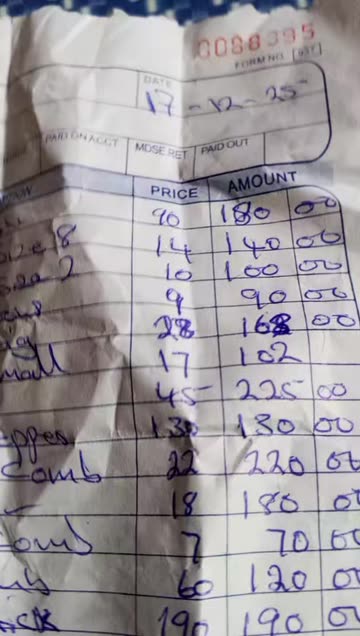 0088395
FORM NO. [937]
DATE
17 - 12 - 25
PAID ON ACCT MDSE RET PAID OUT
PRICE AMOUNT
90 180 00
8 14 140 00
2 10 100 00
9 90 00
28 168 00
mall 17 102
45 225 00
130 130 00
Comb 22 220 00
18 180 00
omb 7 70 00
60 120 00
190 190 00